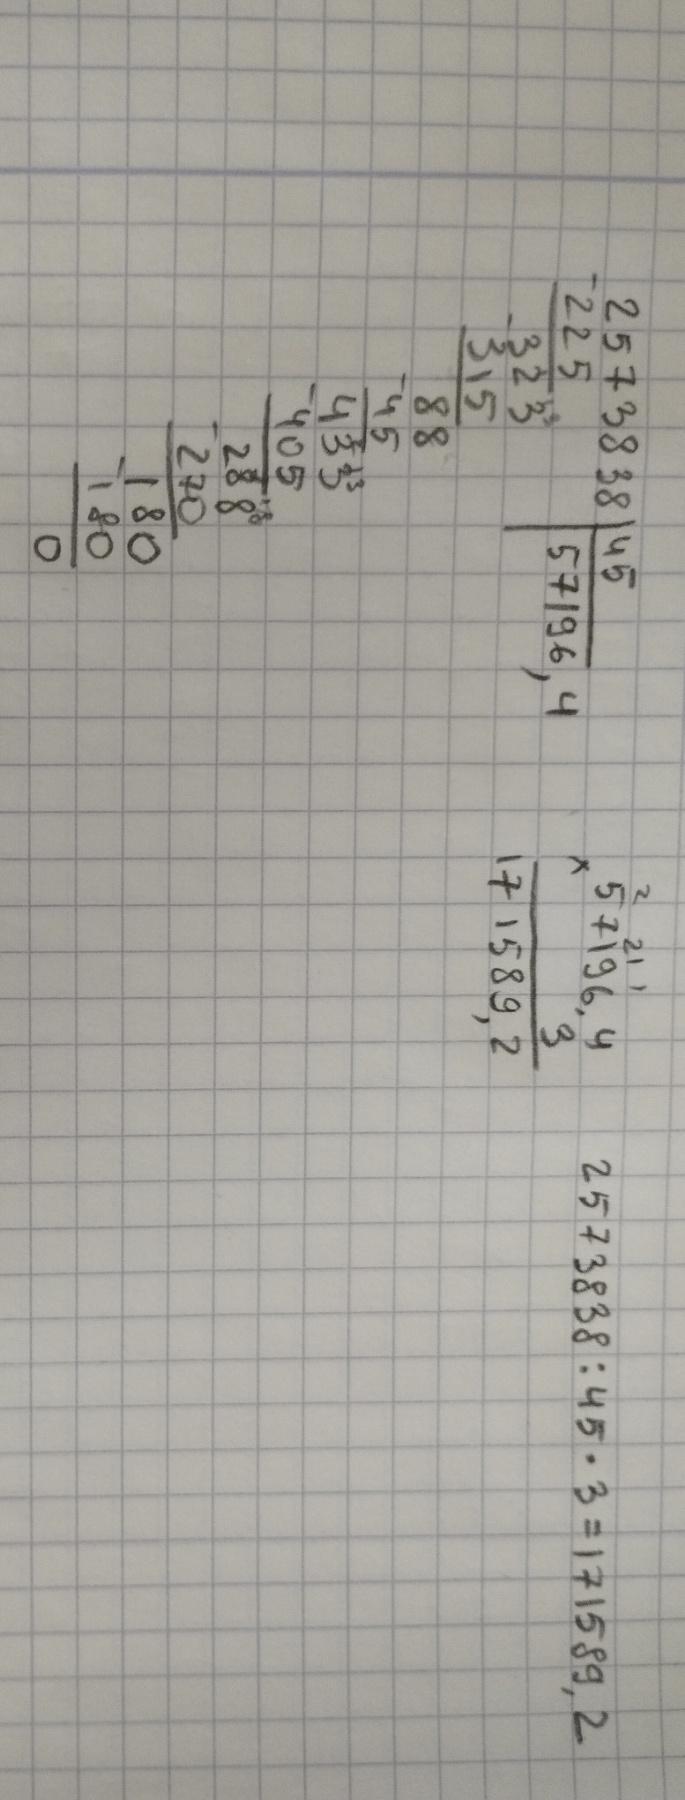 2573838 45
-225 57196,4
-323
315
88
-45
433
-405
288
-270
-180
-180
0
57196,4
× 3
171589,2
2573838:45·3=171589,2